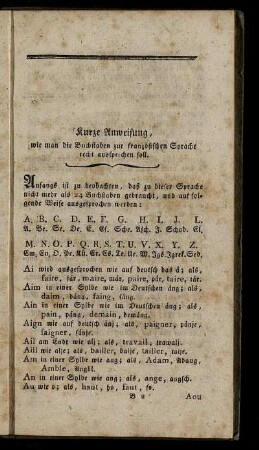 Kurze Anweisung,
wie man die Buchstaben zur französischen Sprache
recht aussprechen soll.
Anfangs ist zu beobachten, daß zu dieser Sprache
nicht mehr als 24 Buchstaben gebraucht, und auf fol-
gende Weise ausgesprochen werden:
A. B. C. D. E. F. G. H. I. J. L.
A. Be. Se. De. E. Ef. Sche. Asch. J. Schod. El.
M. N. O. P. Q. R. S. T. U. V. X. Y. Z.
Em. En. O. Pe. Kü. Er. Es. Te. Ue. W. Igreg. Sed.
Ai wird ausgesprochen wie auf deutsch das ä; als,
faire, fär, maire, mär, pair, pär, taire, tär.
Aim in einer Sylbe wie im Deutschen äng; als,
daim, däng, faing, fäng.
Ain in einer Sylbe wie im Deutschen äng; als,
pain, päng, demain, demäng.
Aign wie auf deutsch änj; als, paigner, pänje,
faigner, fänje.
Ail am Ende wie alj; als, travail, trawalj.
Aill wie alje; als, bailler, balje, tailler, talje.
Am in einer Sylbe wie ang; als, Adam, Adang,
Amble, Angbl.
An in einer Sylbe wie ang; als, ange, angsch.
Au wie o; als, haut, ho, faut, fo.
B Aou